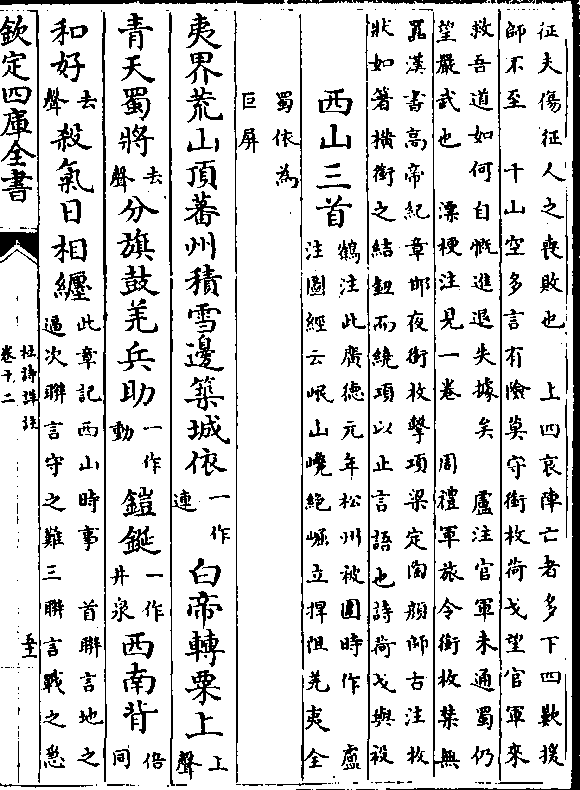 征夫傷征人之喪敗也　上四哀陣亡者多下四歎援
師不至　千山空多言有險莫守銜枚荷戈望官軍來
救吾道如何自慨進退失據矣　盧注官軍未通蜀仍
望嚴武也　漂梗注見一卷　周禮軍旅令銜枚禁無
嚻漢書高帝紀章邯夜銜枚擊項梁定陶顔師古注枚
狀如箸橫銜之結紐而繞項以止言語也詩荷戈與祋
西山三首　鶴注此廣德元年松州被圍時作　盧
注圖經云岷山巉絶崛立捍阻羌夷全
蜀依為
巨屏
夷界荒山頂蕃州積雪邊築城依一作連白帝轉粟上上聲
青天蜀將去聲分旗鼓羌兵助一作動鎧鋋一作井泉西南背倍同
和好去聲殺氣日相纏　此章記西山時事　首聯言地之
逼次聯言守之難三聯言戰之愁
欽定四庫全書
杜詩詳註
卷十二